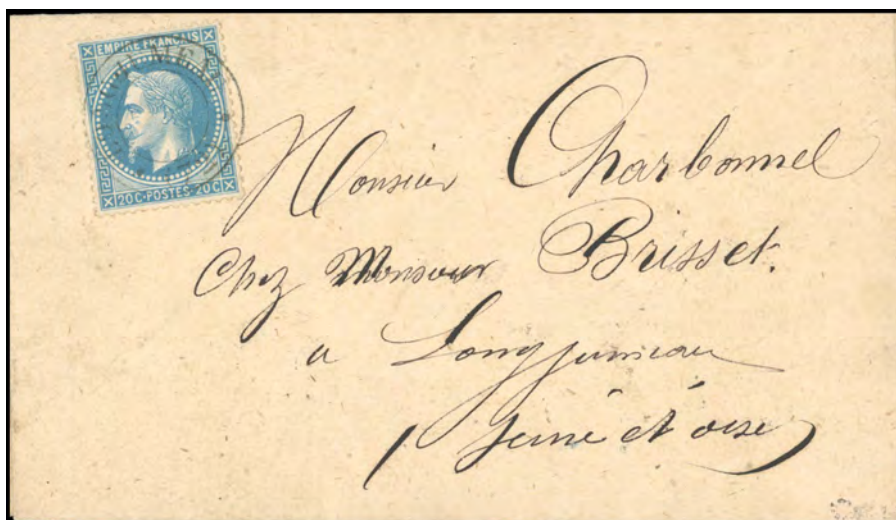 EMPIRE FRANCAIS
20C·POSTES·20C
Monsieur Charbonnel
Chez Monsieur Brisset.
a Longjumeau
Seine et oise